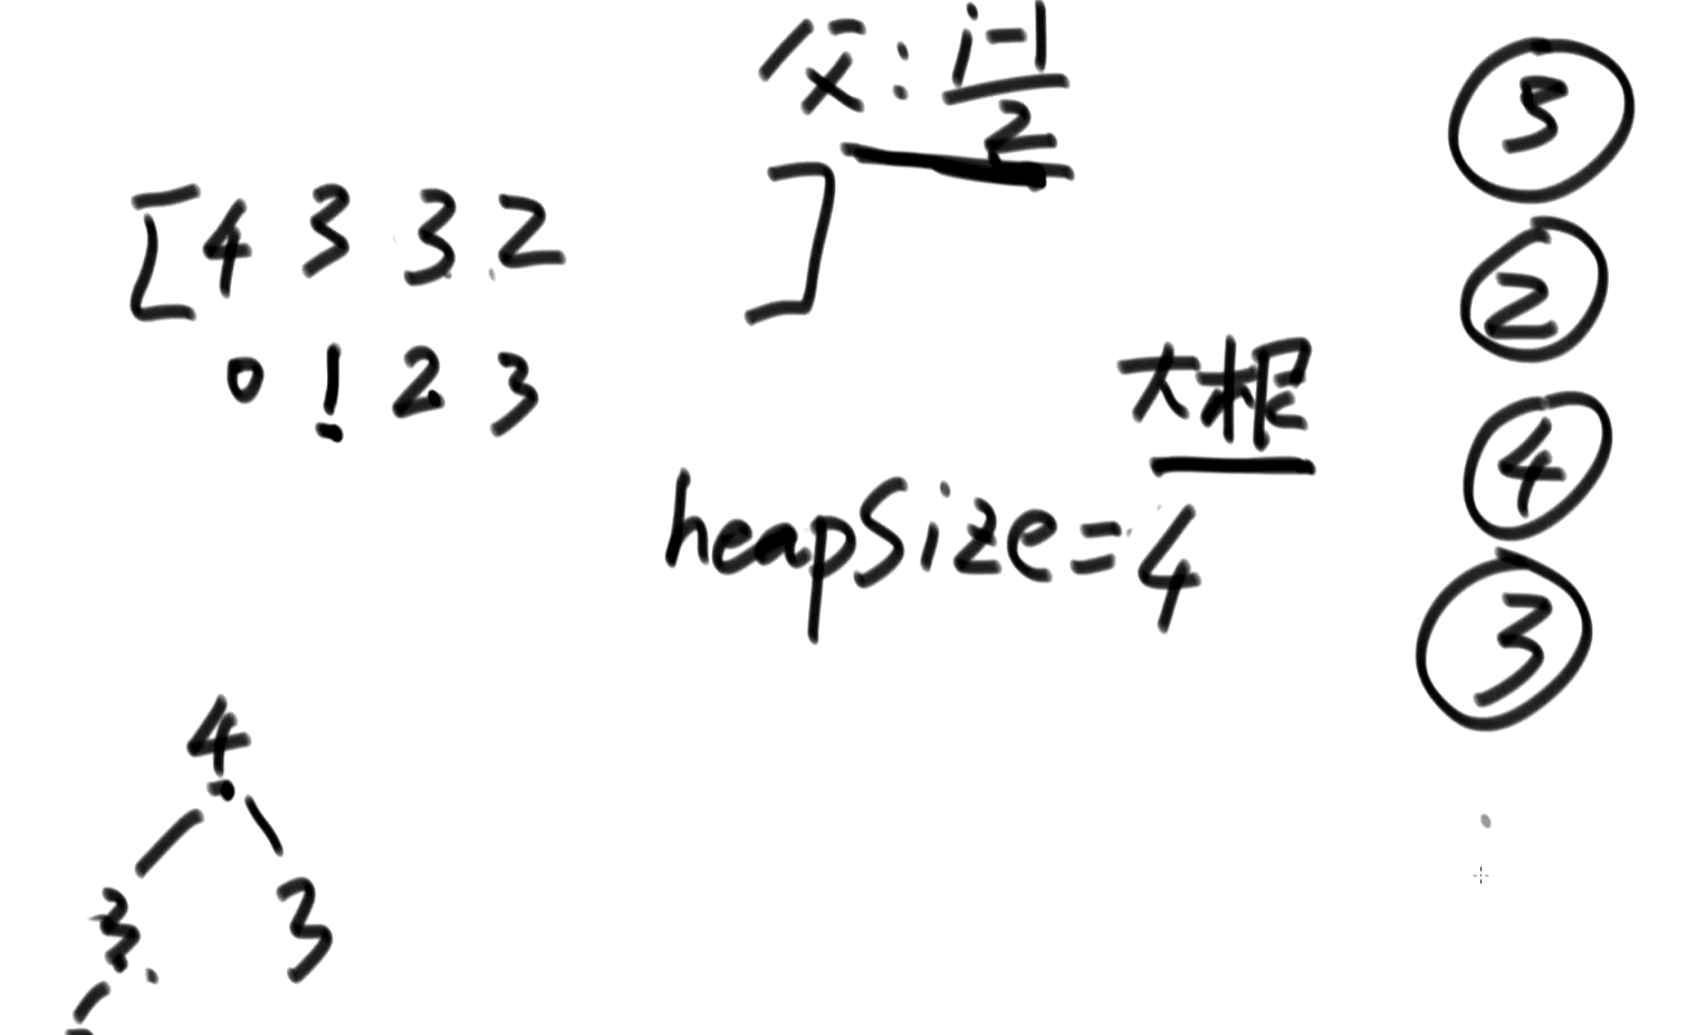 父: i-1
2
[4 3 3 2 ]
0 1 2 3
大根
heapSize=4
4
3 3
5
2
4
3